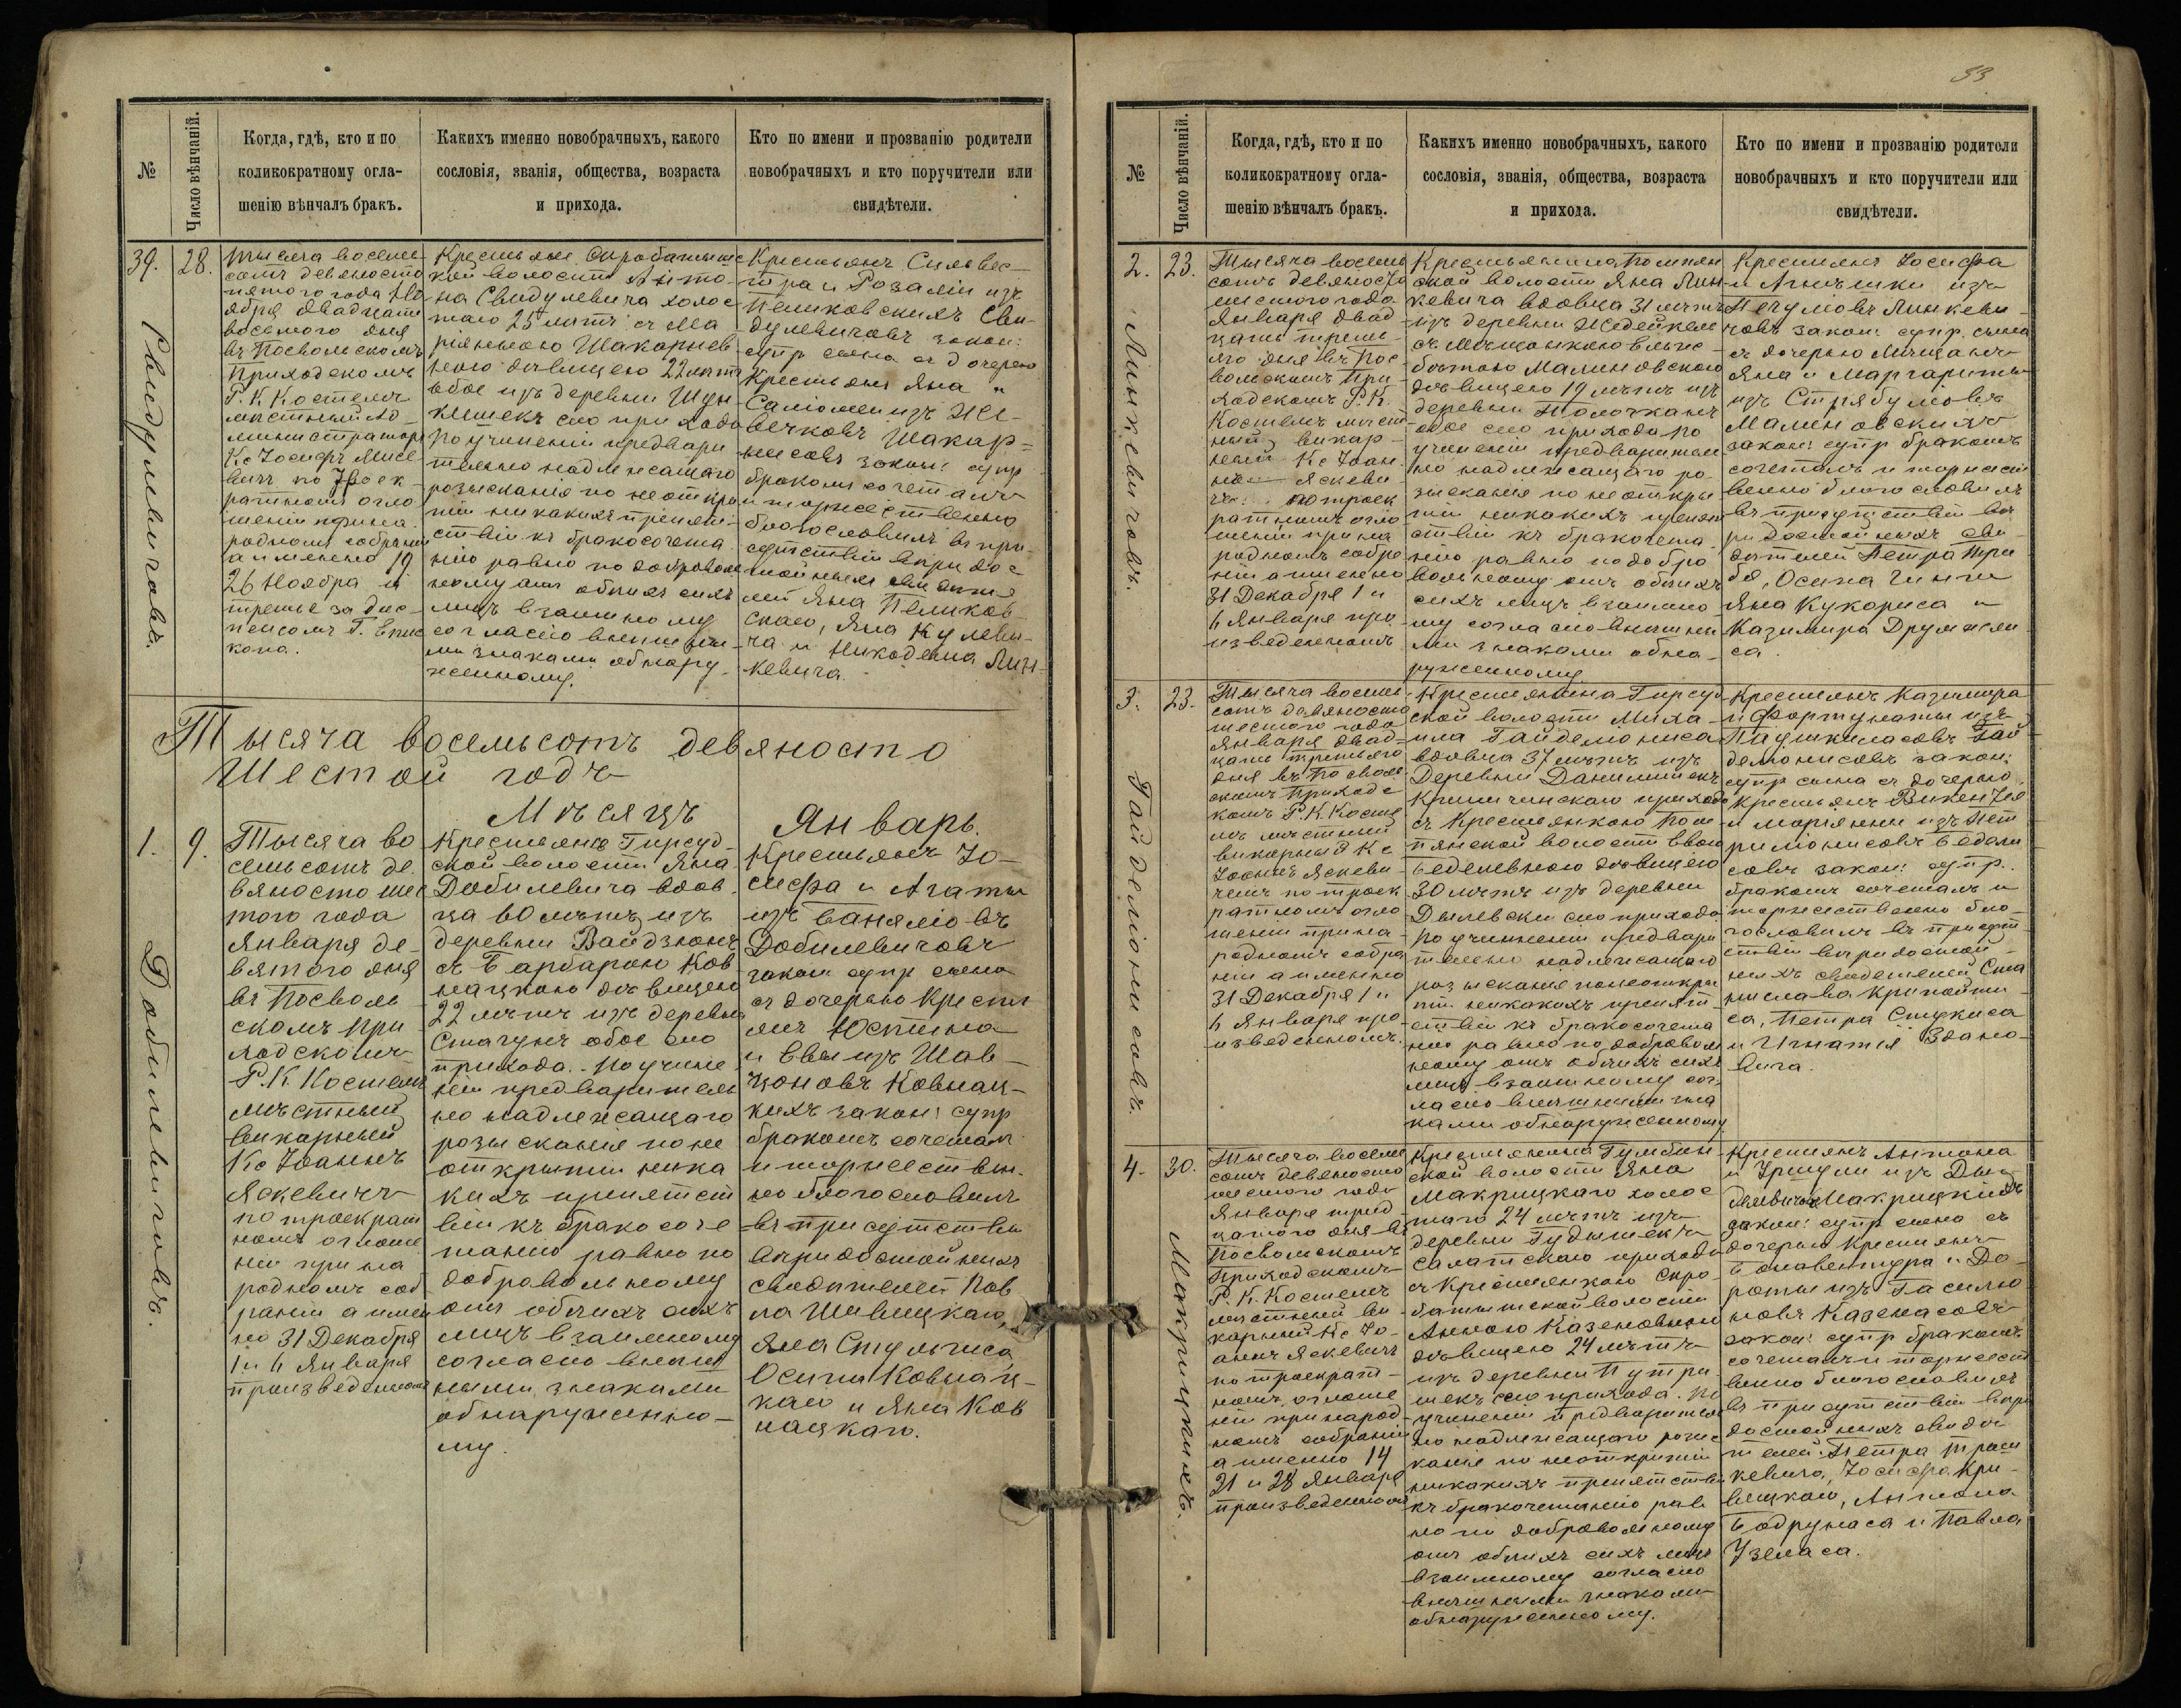 33
№
Число вѣнчаній.
Когда, гдѣ, кто и по
коликократному огла-
шенію вѣнчалъ бракъ.
Какихъ именно новобрачныхъ, какого
сословія, званія, общества, возраста
и прихода.
Кто по имени и прозванію родители
новобрачныхъ и кто поручители или
свидѣтели.
39.
28.
Свидулевичовъ.
Тысяча восемь
сотъ девяносто
пятого года Но
ября двадцать
восьмого дня
въ Посвольскомъ
Приходскомъ
Р. К. Костелѣ
мѣстный Ад
министраторъ
Кс Іосифъ
по
ратномъ огло
шеніи при на
родномъ собраніи
а именно 19
26 Ноября и
третье за дис
пенсомъ Г. Епис
копа.
Крестьяне Скробатышс
кой волости Анто
на Свидулевича холос
таго 25 лѣтъ съ Ма
ріянною Шакарнев
ною дѣвицею 22 лѣтъ
обое изъ деревни
сего прихода
По учиненіи предвари
тельно надлежащаго
розысканія по неоткры
тіи никакихъ препят
ствій къ бракосочета
нію равно по доброволь
ному отъ обѣихъ сихъ
лицъ взаимному
согласію внѣшны
ми знаками обнару
женному.
Крестьянъ Сильвес
тра и Розаліи изъ
Пешковскихъ Сви
дулевичовъ закон:
супр сына съ дочерью
Крестьянъ Яна и
Саломеи изъ
Шакар
нисовъ закон: супр
бракомъ сочеталъ
и торжественно
благословилъ въ при
сутствіи вѣридос
тойныхъ свидѣте
лей Яна Пешков
скаго, Яна Кулеви
ча и Никодема Лин
кевича.
Тысяча восемьсотъ девяносто
Шестой годъ
Мѣсяцъ Январь.
1.
9.
Добилевичовъ.
Тысяча во
семьсотъ де
вяносто шес
того года
Января де
вятого дня
въ Посволь
скомъ При
ходскомъ
Р. К Костелѣ
мѣстный
викарный
Кс Іоаннъ
Яскевичъ
по троекрат
номъ оглоше
ніи при на
родномъ соб
раніи а имен
но 31 Декабря
1 и 6 Января
произведенномъ
Крестьянъ Гирсуд
ской волости Яна
Добилевича вдов
ца 60 лѣтъ изъ
деревни Вайдзюнъ
съ Барбарою Ков
нацкою дѣвицею
22 лѣтъ изъ деревни
Стачунъ обое сего
прихода. По учине
ніи предваритель
но надлежащаго
розысканія по не
открытіи ника
кихъ препятст
вій къ бракосоче
танію равно по
добровольному
отъ обѣихъ сихъ
лицъ взаимному
согласію внѣш
ными знаками
обнаруженно
му.
Крестьянъ Іо
сифа и Агаты
изъ
Добилевичовъ
закон супр сына
съ дочерью Кресть
янъ Юстина
и Евы изъ Шав
Ковнац
кихъ закон: супр
бракомъ сочеталъ
и торжествен
но благословилъ
въ присутствіи
вѣридостойныхъ
свидѣтелей Пав
ла Шивицкаго,
Яна Стульгиса,
Осипа Ковнац
каго и Яна Ков
нацкаго.
№
Число вѣнчаній.
Когда, гдѣ, кто и по
коликократному огла-
шенію вѣнчалъ бракъ.
Какихъ именно новобрачныхъ, какого
сословія, званія, общества, возраста
и прихода.
Кто по имени и прозванію родители
новобрачныхъ и кто поручители или
свидѣтели.
2.
23.
Линкевичовъ.
Тысяча восемь
сотъ девяносто
шестого года
Января двад
цать треть
яго дня въ Пос
вольскомъ При
ходскомъ Р. К.
Костелѣ мѣст
ный викар
ный Кс Іоан
нъ Яскеви
чъ по троек
ратномъ огло
шеніи при на
родномъ собра
ніи а именно
31 Декабря 1 и
6 Января про
изведенномъ
Крестьянина Помпян
ской волости Яна Лин
кевича вдовца 31 лѣтъ
изъ деревни Жедейкел
съ Мѣщанкою Ельжс
бетою Малиновскою
дѣвицею 19 лѣтъ изъ
деревни Толочканъ
обое сего прихода по
учиненіи предваритель
но надлежащаго ро
зысканія по неоткры
тіи никакихъ препят
ствій къ бракочета
нію равно по добро
вольному отъ обѣихъ
сихъ лицъ взаимно
му согласію внѣшны
ми знаками обна
руженному
Крестьянъ Іосифа
и Агнешки изъ
Линкеви
човъ закон: супр. сына
съ дочерью Мѣщанъ
Яна и Маргариты
изъ
Малиновскихъ
закон: супр бракомъ
сочеталъ и торжест
венно благословилъ
въ присутствіи вѣ
ридостойныхъ сви
дѣтелей Петра
Осипа
Яна Кукориса и
Казимира
са.
3.
23.
Гайделіонисовъ.
Тысяча восемь
сотъ девяносто
шестого года
Января двад
цать третьяго
дня въ Посволь
скомъ Приходс
комъ Р. К. Косте
лѣ мѣстный
викарный Кс
Іоаннъ Яскеви
чемъ по троек
ратномъ огло
шеніи при на
родномъ собра
ніи а именно
31 Декабря 1 и
6 Января про
изведенномъ.
Крестьянина Гирсуд
ской волости Миха
ила Гайделіониса
вдовца 37 лѣтъ изъ
Деревни Данилишекъ
прихода
съ Крестьянкою Пом
пянской волости Евою
Беделевною дѣвицею
30 лѣтъ изъ деревни
сего прихода
По учиненіи предвари
тельно надлежащаго
розысканія по неоткры
тіи никакихъ препят
ствій къ бракосочета
нію равно по доброволь
ному отъ обѣихъ сихъ
лицъ взаимному сог
ласію внѣшними зна
ками обнаруженному
Крестьянъ Казимира
и Фортунаты изъ
Гай
деліонисовъ закон:
супр сына съ дочерью
Крестьянъ Викентія
и Маріянны изъ
Бедели
совъ закон: супр.
бракомъ сочеталъ и
торжественно бла
гословилъ въ присут
ствіи вѣридостой
ныхъ свидетелей Ста
нислава
са, Петра
и Игнатія Здано
вича.
4.
30.
Макрицкихъ.
Тысяча восемь
сотъ девяносто
шестого года
Января трид
цатого дня въ
Посвольскомъ
Приходскомъ
Р. К. Костелѣ
мѣстный ви
карный Кс Іо
аннъ Яскевичъ
по троекрат
номъ оглоше
ніи при народ
номъ собраніи
а именно 14
21 и 28 Января
произведенномъ
Крестьянина Гумбин
ской волости Яна
Макрицкаго холос
таго 24 лѣтъ изъ
деревни Гудышекъ
Салатскаго прихода
съ Крестьянкою Скро
батышской волости
Анною Казеновною
дѣвицею 24 лѣтъ
изъ деревни Путри
шекъ сего прихода. По
учиненіи предваритель
но надлежащаго розыс
канія по неоткрытіи
никакихъ препятствій
къ бракочетанію рав
но по добровольному
отъ обѣихъ сихъ лицъ
взаимному согласію
внѣшными знаками
обнаруженному.
Крестьянъ Антона
и Уршули изъ
Макрицкихъ
закон: супр сына съ
дочерью Крестьянъ
Бонавентура и До
роты изъ
Казенасовъ
закон: супр бракомъ
сочеталъ и торжест
венно благословилъ
въ присутствіи вѣри
достойныхъ свидѣ
телей Петра
кевича, Іосифа Кри
вицкаго, Антона
и Павла
Узеласа.